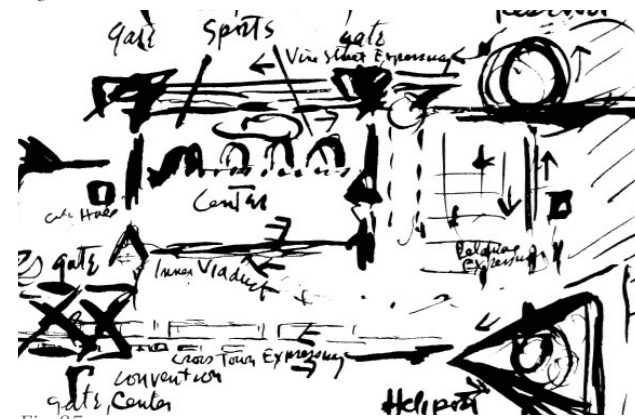 Reservoir
gate Sports gate
Vine Street Expressway
Center
City Hall
gate
Inner Viaduct
Delaware Expressway
Cross Town Expressway
convention
gate, Center
Heliport